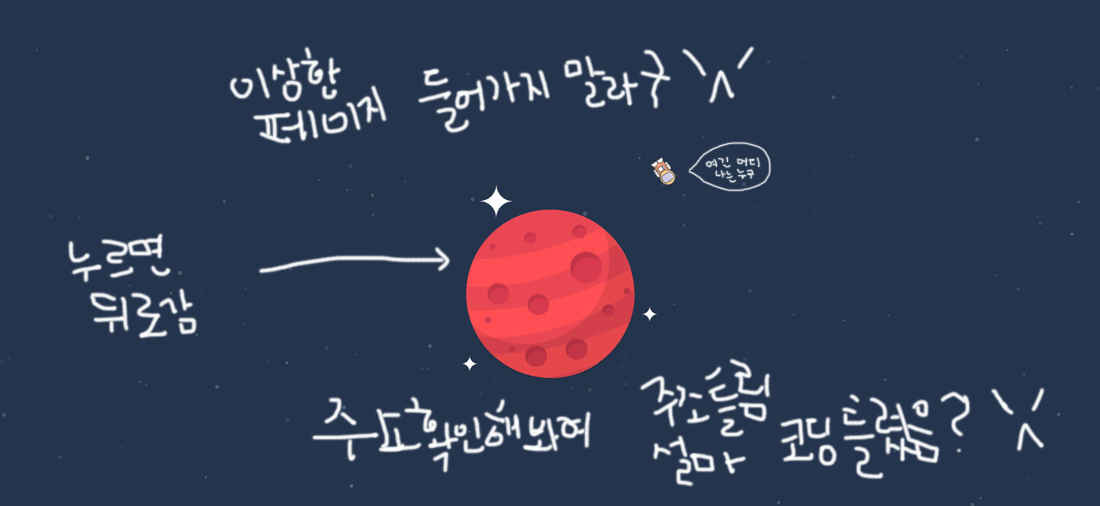 이상한
페이지 들어가지 말라구 \ ㅅ /
여긴 어디
나는 누구
누르면
뒤로감
주소확인해봐여
주소틀림
설마 코딩틀렸음? \ ㅅ /